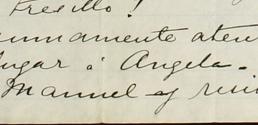 Tresillo!
sumamente aten
lugar á Angela.
Manuel y